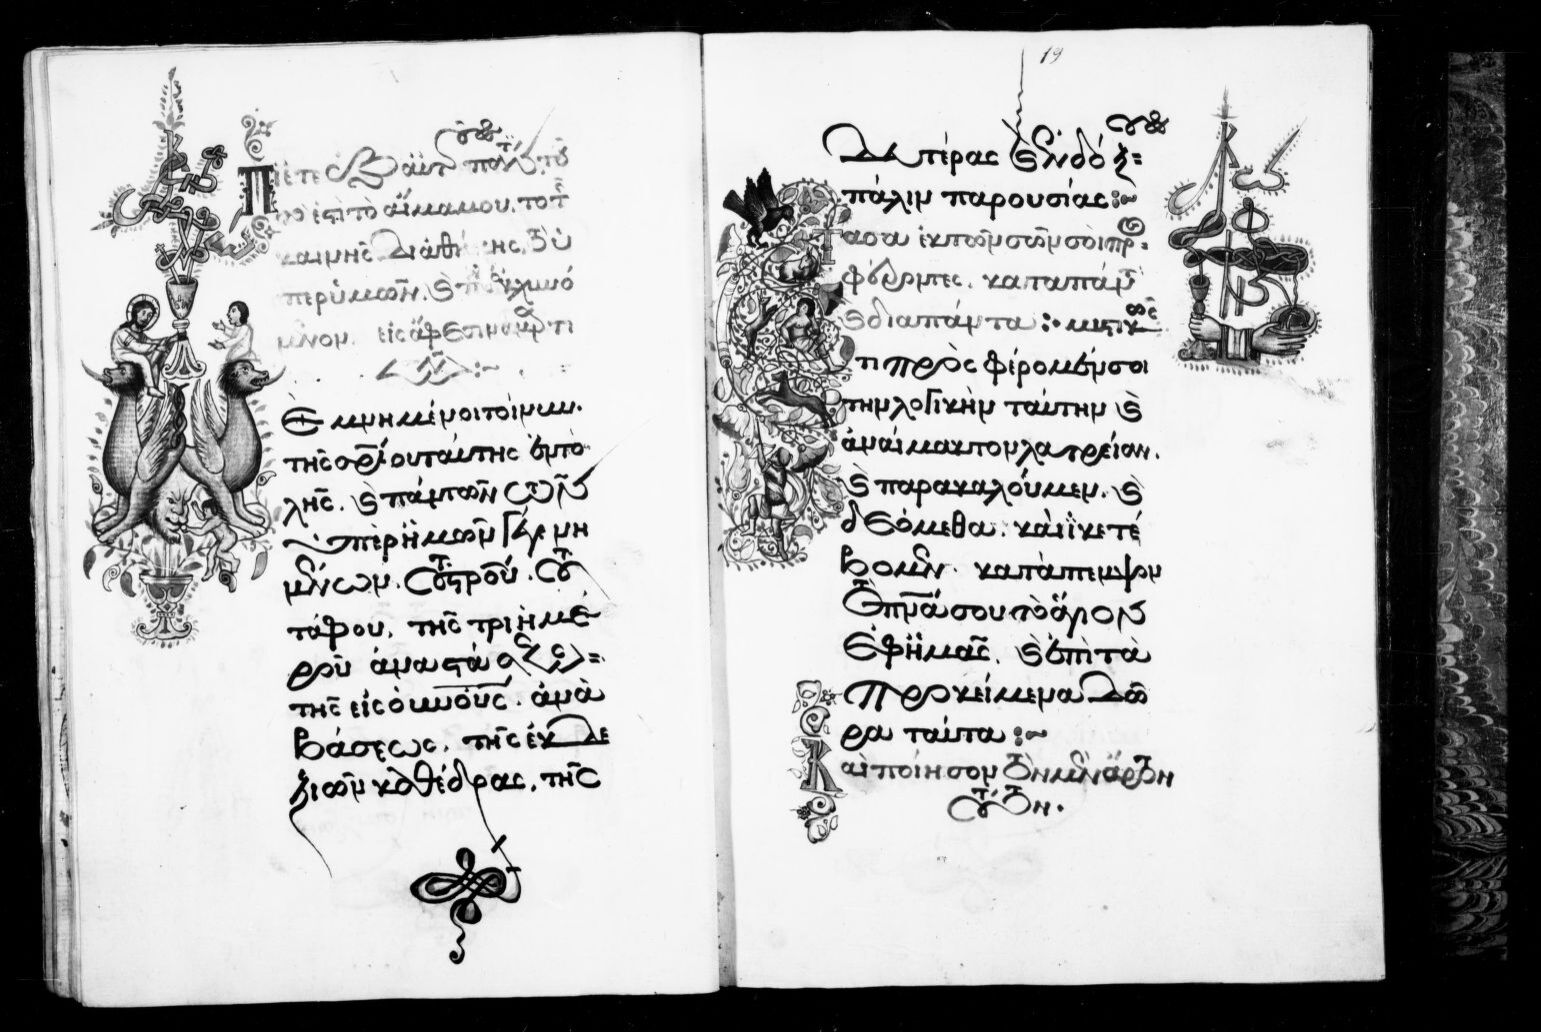 Πίετε ἐξ αὐτοῦ πάντες τοῦ
τό ἐστὶ τὸ αἷμα μου, τὸ τῆς
καινῆς διαθήκης, τὸ ὑ
πὲρ ὑμῶν, καὶ πολλῶν ἐκχυνό
μενον εἰς ἄφεσιν ἁμαρτι
ῶν :~
Μεμνημένοι τοίνυν
τῆς σωτηρίου ταύτης ἐντο
λῆς. καὶ πάντων τῶν
ὑπὲρ ἡμῶν γεγενη
μένων. τοῦ σταυροῦ. τοῦ
τάφου, τῆς τριημέ
ρου ἀναστάσεως =
τῆς εἰς οὐνοὺς ἀνα
βάσεως, τῆς ἐκ δε
ξιῶν καθέδρας, τῆς
19
δευτέρας καὶ ἐνδόξου
πάλιν παρουσίας :~
Τὰ σὰ ἐκ τῶν σῶν σοὶ προ
σφέρομεν. κατὰ πάντα
καὶ διὰ πάντα :
ἔτι προσφέρομέν σοι
τὴν λογικὴν ταύτην καὶ
ἀναίμακτον λατρείαν.
καὶ παρακαλοῦμεν. καὶ
δεόμεθα. καὶ ἱκετεύ
ομεν. κατάπεμψον
τὸ πνᾶ σου τὸ ἅγιον
ἐφ' ἡμᾶς. καὶ ἐπὶ τὰ
προκείμενα δῶ
ρα ταῦτα :~
Καὶ ποίησον τὸν μὲν ἄρτον
τοῦτον.